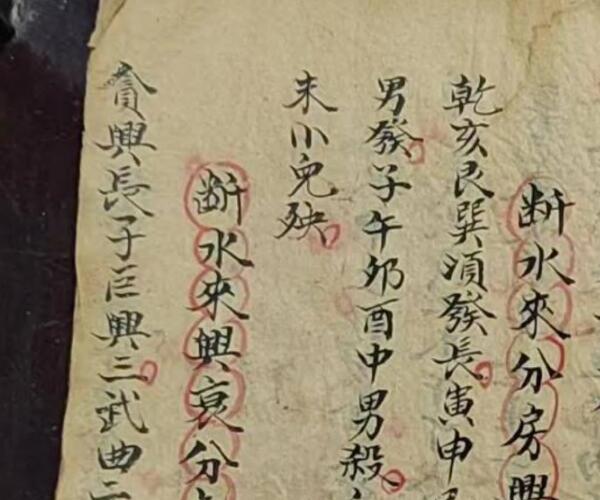 斷水來分房興
乾亥艮巽項發長寅申
男發子午卯酉中男殺
未小兒殃
斷水來興衰分
貪興長子巨興三武曲二